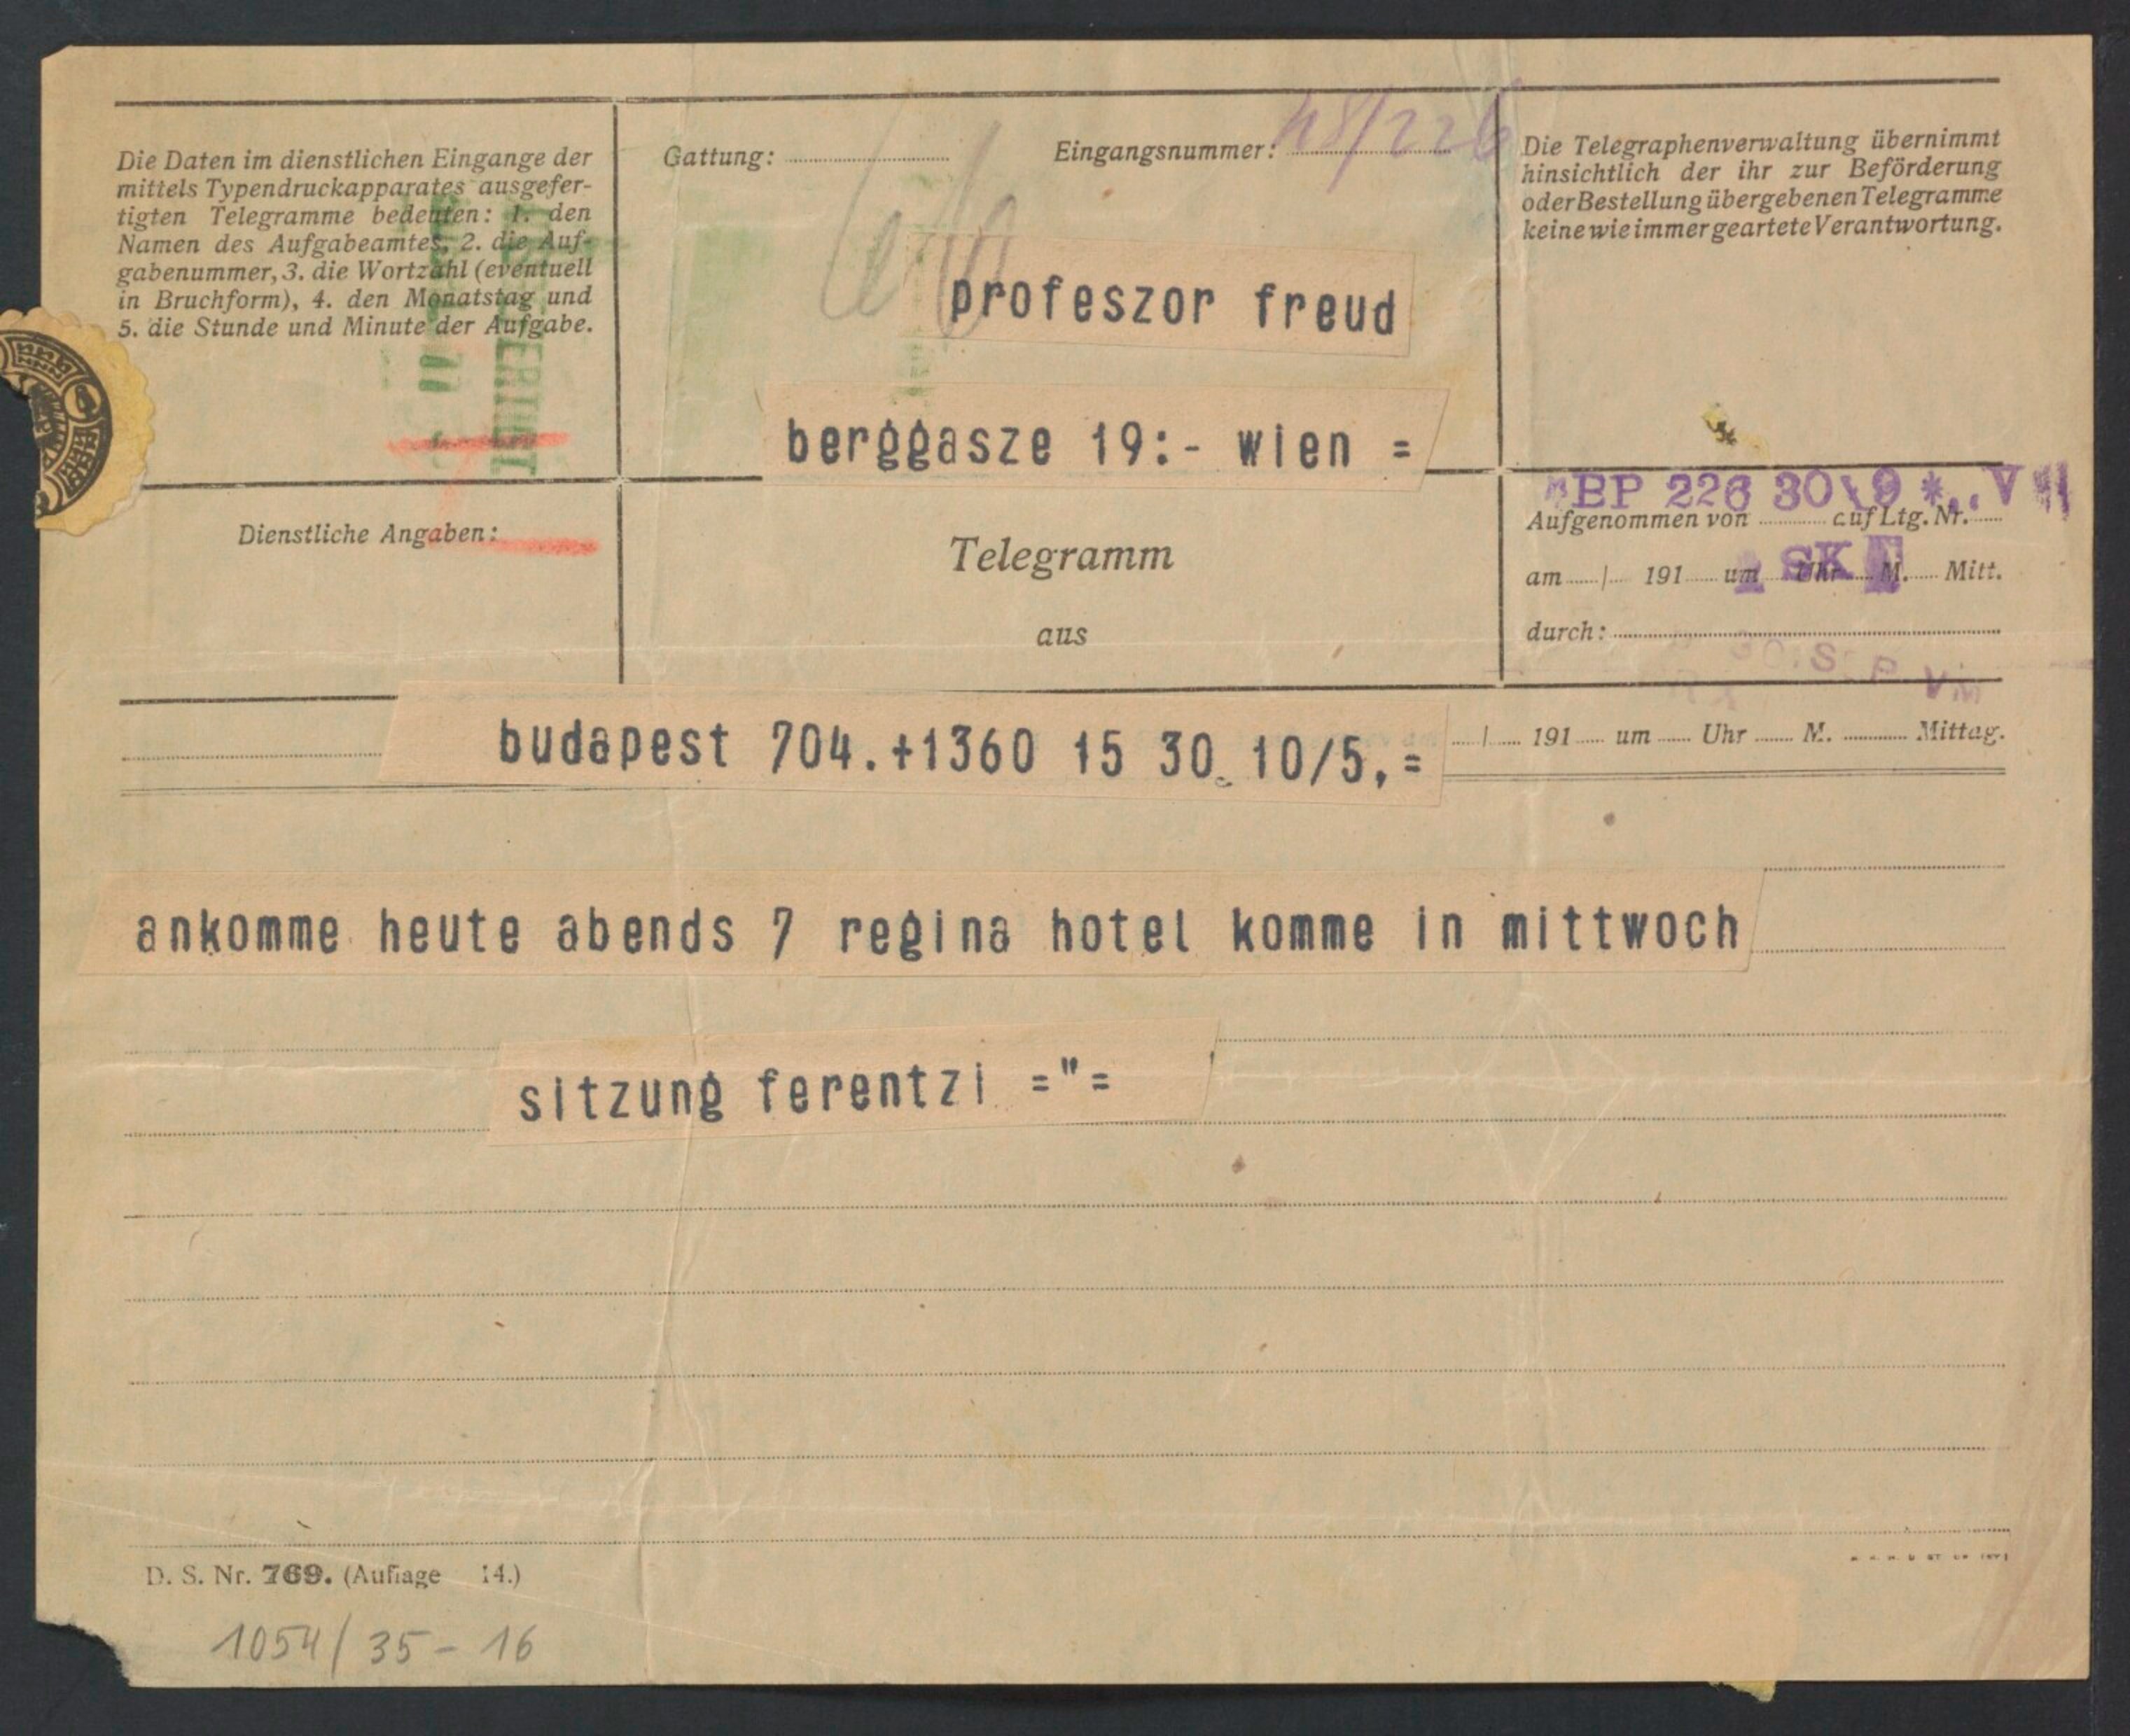 Die Daten im dienstlichen Eingange der
mittels Typendruckapparates ausgefer-
tigten Telegramme bedeuten: 1. den
Namen des Aufgabeamtes, 2. die Auf-
gabenummer, 3. die Wortzahl (eventuell
in Bruchform), 4. den Monatstag und
5. die Stunde und Minute der Aufgabe.
Gattung:
Eingangsnummer:
Die Telegraphenverwaltung übernimmt
hinsichtlich der ihr zur Beförderung
oder Bestellung übergebenen Telegramme
keine wie immer geartete Verantwortung.
profeszor freud
berggasze 19:- wien =
Dienstliche Angaben:
Telegramm
aus
BP 226 30\9 *
Aufgenommen von auf Ltg. Nr.
SK
am / 191 um Uhr M. Mitt.
durch:
budapest 704.+1360 15 30. 10/5,=
/ 191 um Uhr M. Mittag.
ankomme heute abends 7 regina hotel komme in mittwoch
sitzung ferentzi ="=
D. S. Nr. 769. (Auflage 14.)
1054/35-16